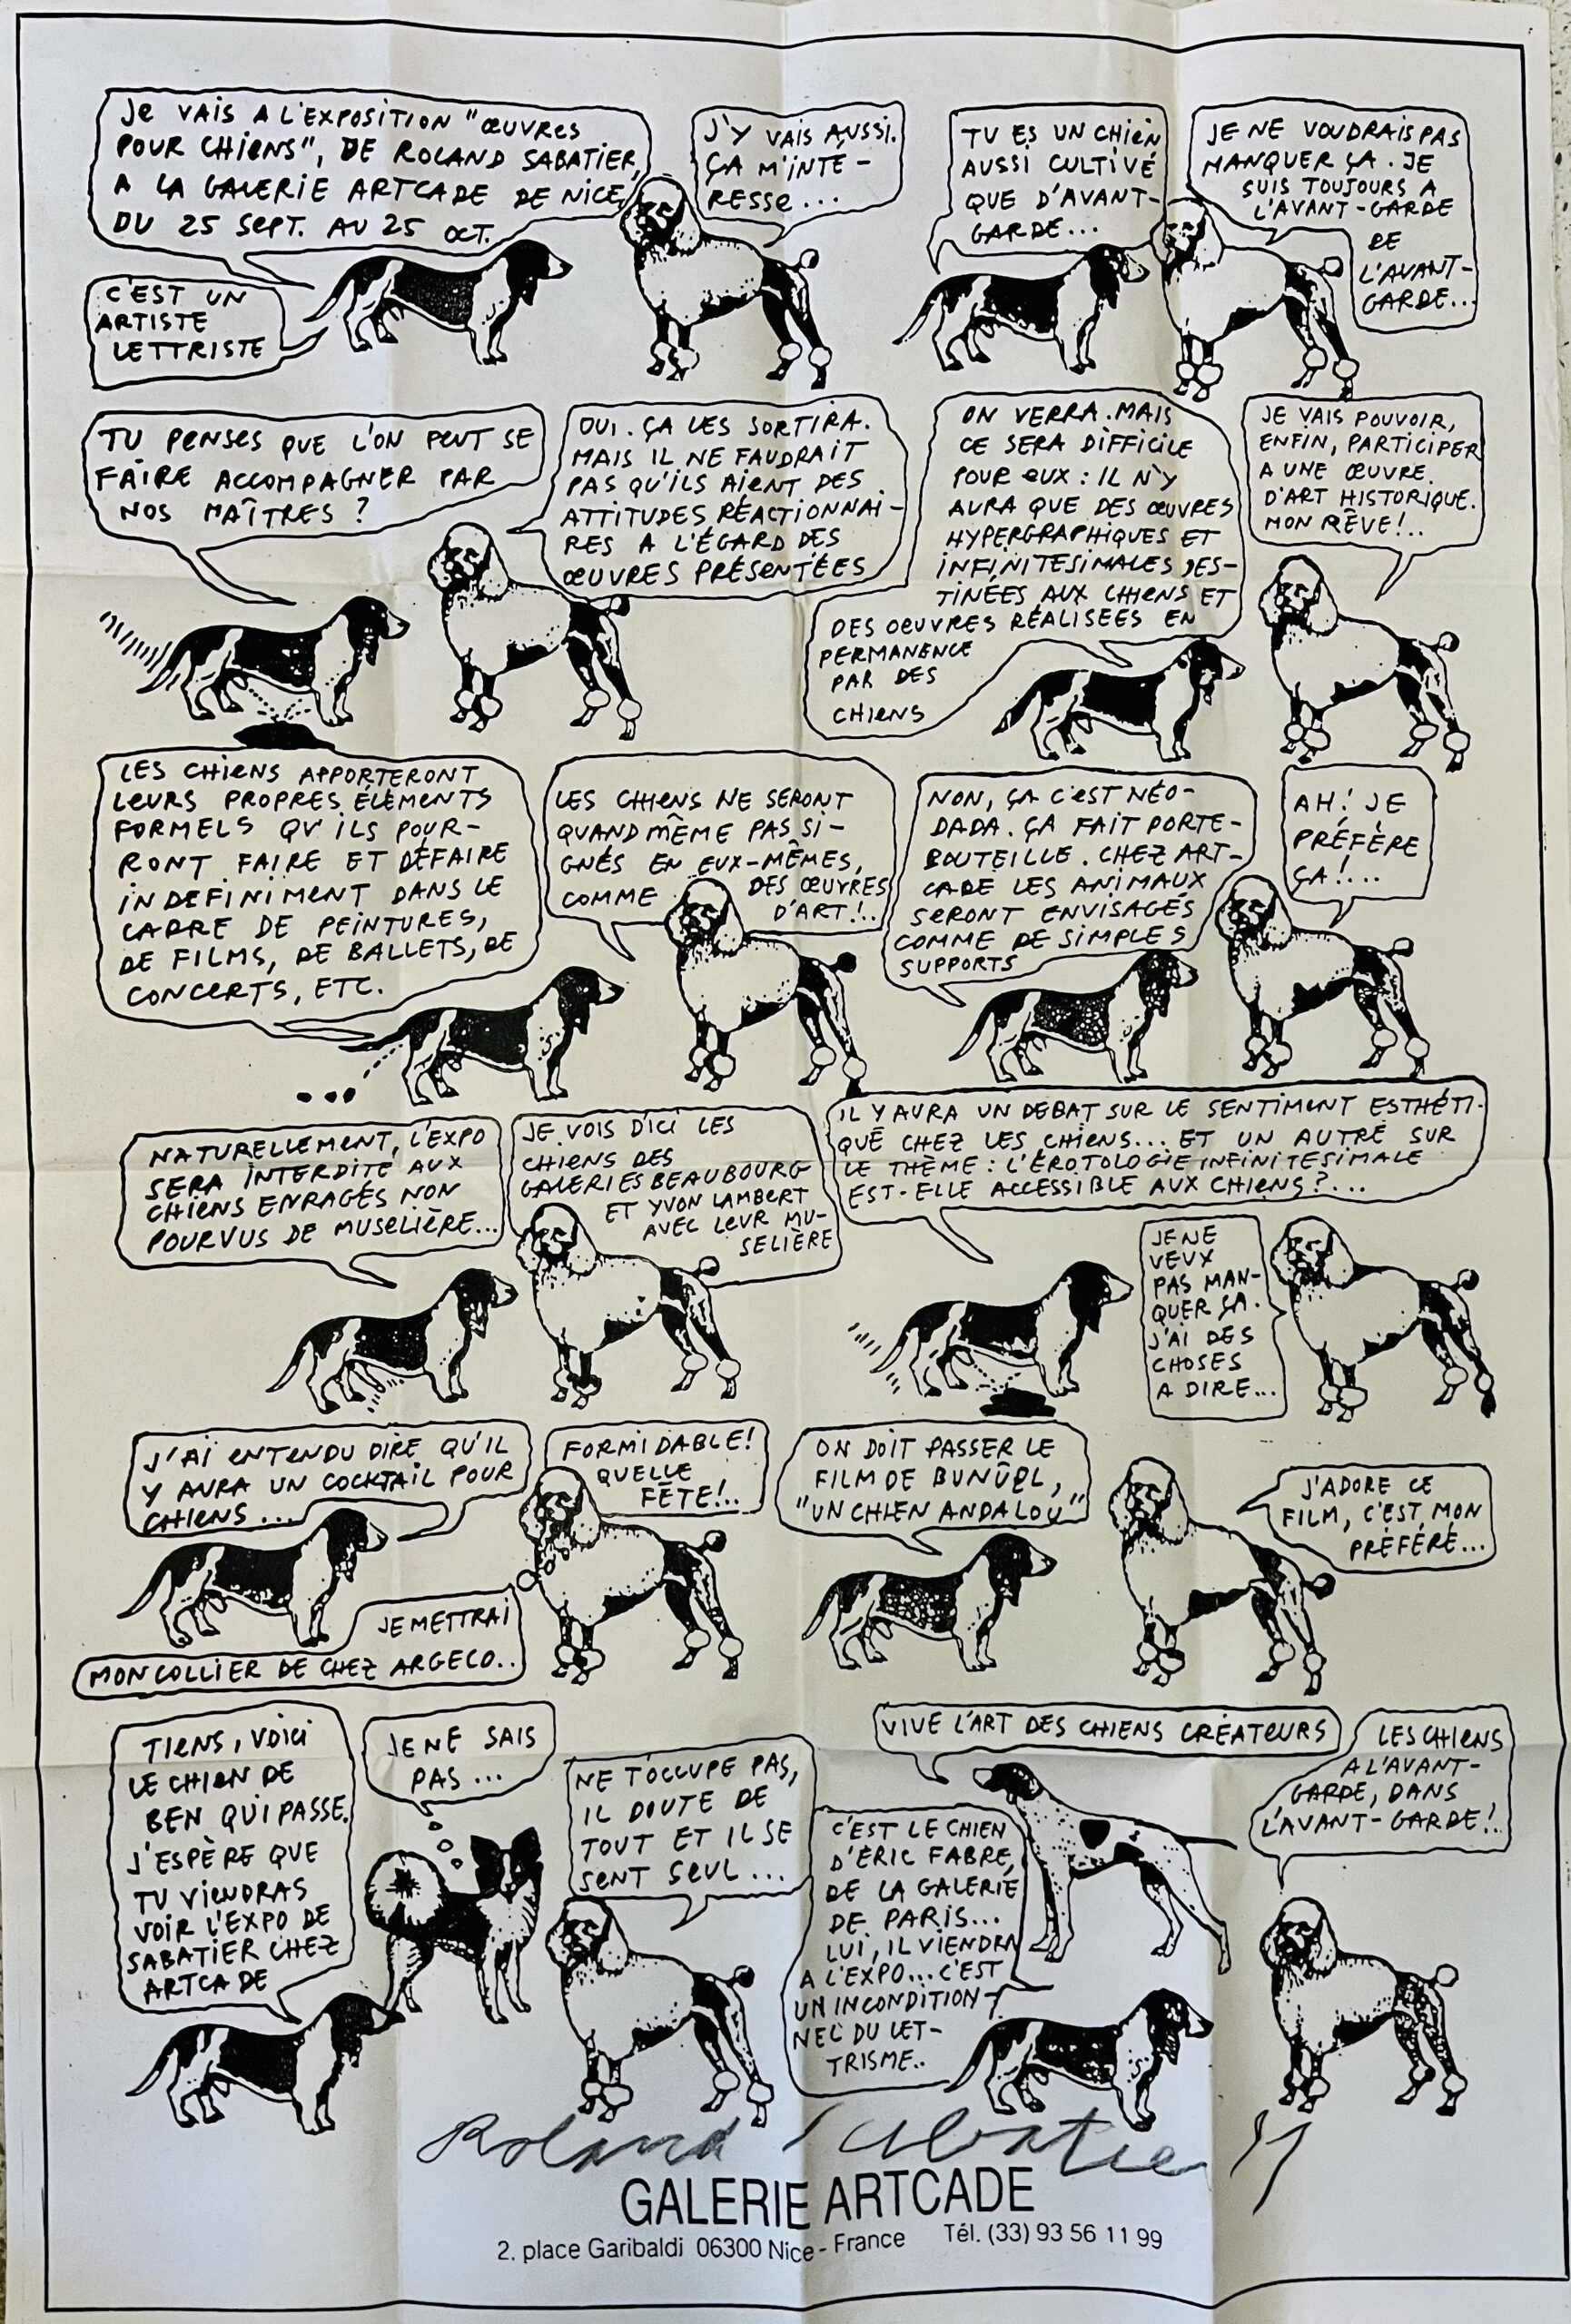 Je VAIS A L'EXPOSITION "ŒUVRES
POUR CHIENS", DE ROLAND SABATIER,
A LA GALERIE ARTCADE DE NICE,
DU 25 SEPT. AU 25 OCT.
C'EST UN
ARTISTE
LETTRISTE
J'Y VAIS AUSSI.
ÇA M'INTÉ-
RESSE...
TU ES UN CHIEN
AUSSI CULTIVÉ
QUE D'AVANT-
GARDE...
JE NE VOUDRAIS PAS
MANQUER ÇA. JE
SUIS TOUJOURS A
L'AVANT-GARDE
DE
L'AVANT-
GARDE...
TU PENSES QUE L'ON PEUT SE
FAIRE ACCOMPAGNER PAR
NOS MAÎTRES ?
OUI. ÇA LES SORTIRA.
MAIS IL NE FAUDRAIT
PAS QU'ILS AIENT DES
ATTITUDES RÉACTIONNAI-
RES A L'ÉGARD DES
ŒUVRES PRÉSENTÉES
ON VERRA. MAIS
CE SERA DIFFICILE
POUR EUX : IL N'Y
AURA QUE DES ŒUVRES
HYPERGRAPHIQUES ET
INFINITESIMALES DES-
TINÉES AUX CHIENS ET
DES OEUVRES RÉALISEES EN
PERMANENCE
PAR DES
CHIENS
JE VAIS POUVOIR,
ENFIN, PARTICIPER
A UNE ŒUVRE
D'ART HISTORIQUE.
MON RÊVE!..
LES CHIENS APPORTERONT
LEURS PROPRES ÉLÉMENTS
FORMELS QU'ILS POUR-
RONT FAIRE ET DÉFAIRE
INDEFINIMENT DANS LE
CADRE DE PEINTURES,
DE FILMS, DE BALLETS, DE
CONCERTS, ETC.
LES CHIENS NE SERONT
QUAND MÊME PAS SI-
GNÉS EN EUX-MÊMES,
COMME DES ŒUVRES
D'ART!..
NON, ÇA C'EST NÉO-
DADA. ÇA FAIT PORTE-
BOUTEILLE. CHEZ ART-
CADE LES ANIMAUX
SERONT ENVISAGÉS
COMME DE SIMPLES
SUPPORTS
AH! JE
PRÉFÈRE
ÇA!...
NATURELLEMENT, L'EXPO
SERA INTERDITE AUX
CHIENS ENRAGÉS NON
POURVUS DE MUSELIÈRE...
JE VOIS D'ICI LES
CHIENS DES
GALERIES BEAUBOURG
ET YVON LAMBERT
AVEC LEUR MU-
SELIÈRE
IL Y AURA UN DEBAT SUR LE SENTIMENT ESTHÉTI-
QUE CHEZ LES CHIENS... ET UN AUTRE SUR
LE THÈME : L'ÉROTOLOGIE INFINITESIMALE
EST-ELLE ACCESSIBLE AUX CHIENS ?...
JE NE
VEUX
PAS MAN-
QUER ÇA.
J'AI DES
CHOSES
A DIRE...
J'AI ENTENDU DIRE QU'IL
Y AURA UN COCKTAIL POUR
CHIENS...
FORMIDABLE!
QUELLE
FÊTE!..
JE METTRAI
MON COLLIER DE CHEZ ARGECO..
ON DOIT PASSER LE
FILM DE BUNÛEL,
"UN CHIEN ANDALOU"
J'ADORE CE
FILM, C'EST MON
PRÉFÉRÉ...
TIENS, VOICI
LE CHIEN DE
BEN QUI PASSE.
J'ESPÈRE QUE
TU VIENDRAS
VOIR L'EXPO DE
SABATIER CHEZ
ARTCADE
JE NE SAIS
PAS...
NE T'OCCUPE PAS,
IL DOUTE DE
TOUT ET IL SE
SENT SEUL...
VIVE L'ART DES CHIENS CRÉATEURS
C'EST LE CHIEN
D'ÉRIC FABRE,
DE LA GALERIE
DE PARIS...
LUI, IL VIENDRA
A L'EXPO... C'EST
UN INCONDITION-
NEL DU LET-
TRISME..
LES CHIENS
A L'AVANT-
GARDE, DANS
L'AVANT-GARDE!..
Roland Sabatier
GALERIE ARTCADE
2. place Garibaldi 06300 Nice - France Tél. (33) 93 56 11 99